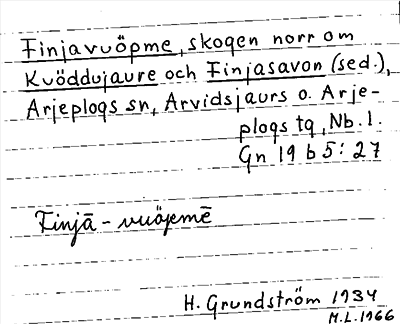 Finjavuöpme, skogen norr om
Kvöddujaure och Finjasavon (sed.),
Arjeplogs sn, Arvidsjaurs o. Arje-
plogs tg, Nb. l.
Gn 19 b 5: 27
Finjā - vuöpmē
H. Grundström 1934
M.L. 1966